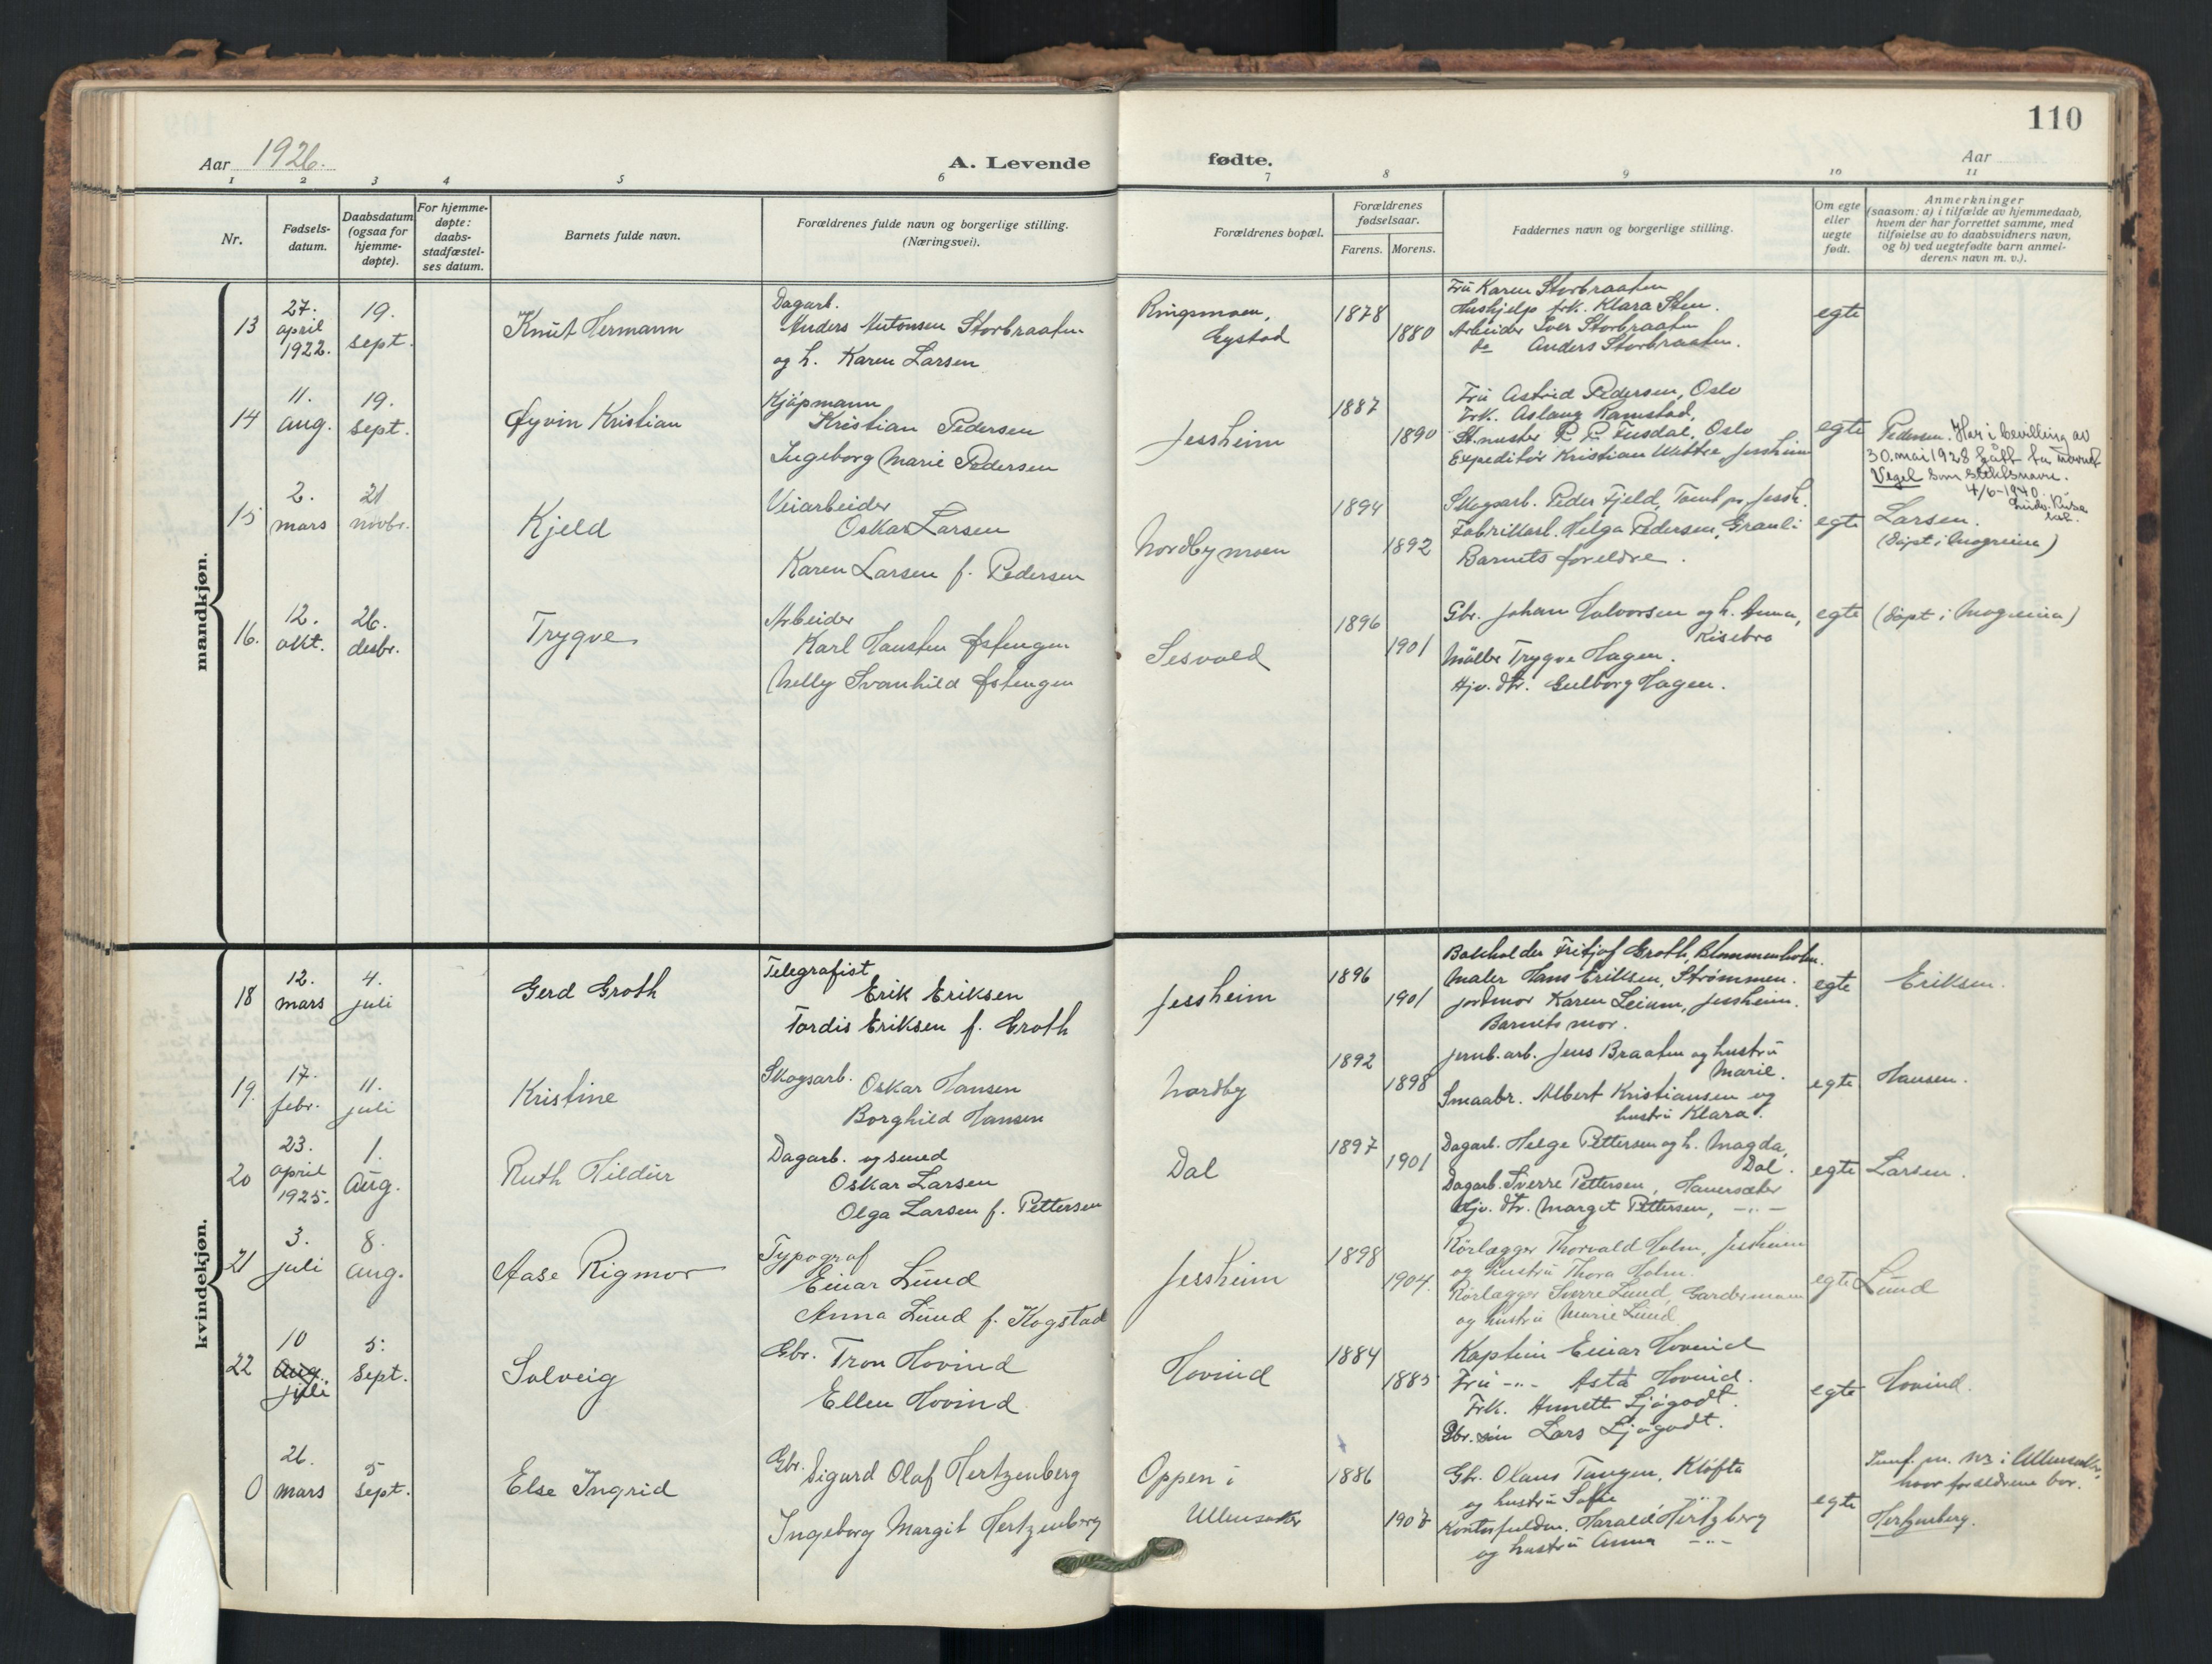 110
Aar 1926.
A. Levende
fødte.
Aar
1 2 3 4 5 6 7 8 9 10 11
Nr.
Fødsels-
datum.
Daabsdatum
(ogsaa for
hjemme-
døpte).
For hjemme-
døpte:
daabs-
stadfæstel-
ses datum.
Barnets fulde navn.
Forældrenes fulde navn og borgerlige stilling.
(Næringsvei).
Forældrenes bopæl.
Forældrenes
fødselsaar.
Farens. Morens.
Faddernes navn og borgerlige stilling.
Om egte
eller
uegte
født.
Anmerkninger
(saasom: a) i tilfælde av hjemmedaab,
hvem der har forrettet samme, med
tilføielse av to daabsvidners navn,
og b) ved uegtefødte barn anmel-
derens navn m. v.).
mandkjøn.
13
27.
april
1922.
19.
sept.
Knut Hermann
Dagarb.
Anders Antonsen Storbraaten
og h. Karen Larsen
Ringsmoen,
Eystad
1878
1880
Fru Karen Storbraaten
Hushjelp frk. Klara Sten.
Arbeider Iver Storbraaten
do Anders Storbraaten.
egte
14
11.
aug.
19.
sept.
Øyvin Kristian
Kjøpmann
Kristian Pedersen
Ingeborg Marie Pedersen
Jessheim
1887
1890
Fru Astrid Pedersen, Oslo
Frk. Aslaug Ramstad,
St.mester P. P. Fusdal, Oslo
Expeditør Kristian Wettre, Jessheim
egte
Pedersen. Har i bevilling av
30. mai 1928 fått ta navnet
Vegel som slektsnavn.
4/6-1940.
15
2.
mars
21
novbr.
Kjeld
Veiarbeider
Oskar Larsen
Karen Larsen f. Pedersen
Nordbymoen
1894
1892
Skogsarb. Peder Fjeld, Tomt pr. Jessh.
Fabrikkarb. Helga Pedersen, Granli
Barnets foreldre.
egte
Larsen.
(Døpt i Mogreina)
16.
12.
okt.
26.
desbr.
Trygve
Arbeider
Karl Hansten Østengen
Nelly Svanhild Østengen
Sesvold
1896
1901
Gbr. Johan Halvorsen og h. Anna,
Risebro
Møller Trygve Hagen.
Hjv. dtr. Gulborg Hagen.
egte
(Døpt i Mogreina)
kvindekjøn.
18
12.
mars
4.
juli
Gerd Groth
Telegrafist
Erik Eriksen
Tordis Eriksen f. Groth
Jessheim
1896
1901
Bokholder Fritjof Groth, Blommenholm.
Maler Hans Eriksen, Strømmen.
Jordmor Karen Leirum, Jessheim.
Barnets mor.
egte
Eriksen.
19.
17.
febr.
11.
juli
Kristine
Skogsarb. Oskar Hansen
Borghild Hansen
Nordby
1892
1898
Jernb.arb. Jens Braaten og hustru
Marie.
Smaabr. Albert Kristiansen og
hustru Klara.
egte
Hansen.
20
23.
april
1925.
1.
Aug.
Ruth Hildur
Dagarb. og smed
Oskar Larsen
Olga Larsen f. Pettersen
Dal
1897
1901
Dagarb. Helge Pettersen og h. Magda,
Dal.
Dagarb. Sverre Pettersen, Hauersæter
Hjv. dtr. Margit Pettersen, -"-
egte
Larsen.
21
3.
juli
8.
aug.
Aase Rigmor
Typograf
Einar Lund
Anna Lund f. Kogstad
Jessheim
1898
1904.
Rørlægger Thorvald Holm, Jessheim
og hustru Thora Holm.
Rørlægger Sverre Lund, Gardermoen
og hustru Marie Lund.
egte
Lund
22
10
Aug.
juli
5.
Sept.
Solveig
Gbr. Tron Hovind
Ellen Hovind
Hovind
1884
1885
Kaptein Einar Hovind
Fru -"- Asta Hovind.
Frk. Annette Ljøgodt.
Gbr. søn Lars Ljøgodt.
egte
Hovind.
0
26.
mars
5
sept.
Else Ingrid
Gbr. Sigurd Olaf Hertzenberg
Ingeborg Margit Hertzenberg
Oppen i
Ullensaker
1886
1907
Gbr. Olaus Tangen, Kløfta
og hustru Sofie -"-
Kontorfuldm. Harald Hertzberg
og hustru Anna -"-
egte
Innf. pr. nr 3 i Ullensaker,
hvor foreldrene bor.
Hertzenberg.